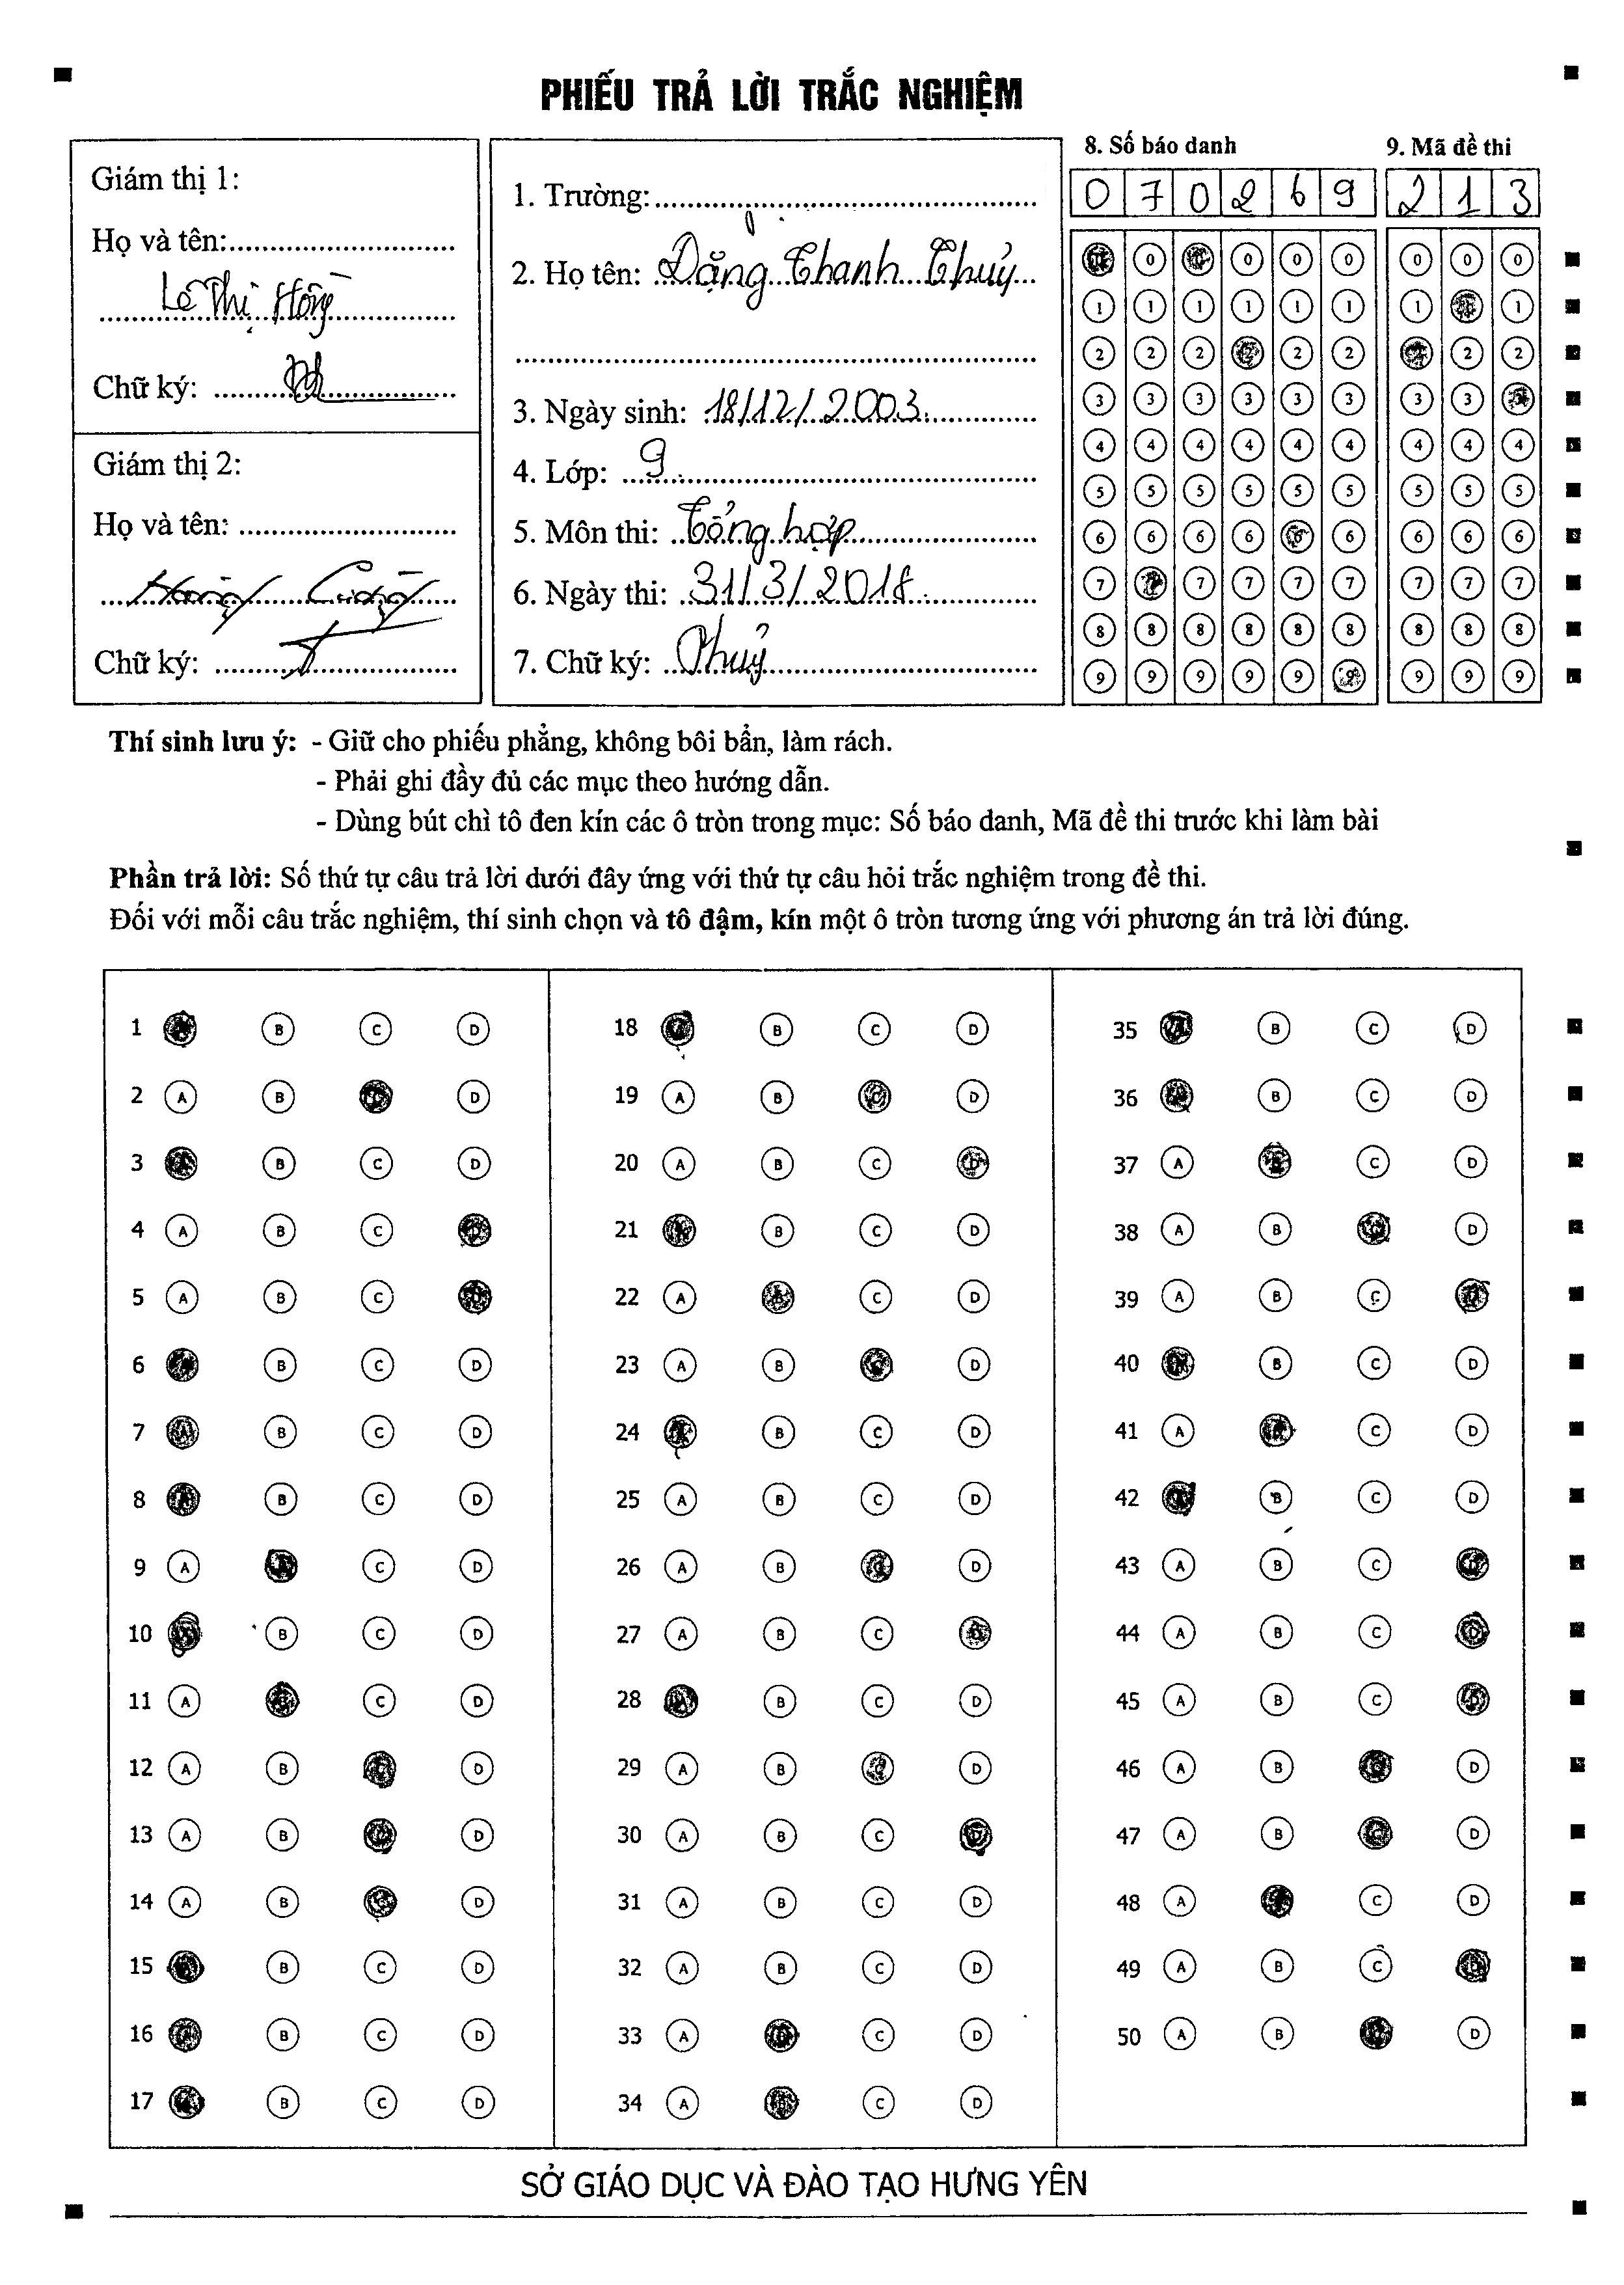 PHIẾU TRẢ LỜI TRẮC NGHIỆM
Giám thị 1:
Họ và tên:
Lê Thị Hồng
Chữ ký:
Giám thị 2:
Họ và tên:
Chữ ký:
1. Trường:
2. Họ tên: Đặng Thanh Thuỷ
3. Ngày sinh: 18/12/2003
4. Lớp: 9
5. Môn thi: Tổng hợp
6. Ngày thi: 31/3/2018
7. Chữ ký: Thuỷ
8. Số báo danh
0 7 0 2 6 9
0 0 0 0
1 1 1 1 1 1
2 2 2 2 2
3 3 3 3 3 3
4 4 4 4 4 4
5 5 5 5 5 5
6 6 6 6 6 6
7 7 7 7 7
8 8 8 8 8 8
9 9 9 9 9 9
9. Mã đề thi
2 1 3
0 0 0
1 1
2 2
3 3 3
4 4 4
5 5 5
6 6 6
7 7 7
8 8 8
9 9 9
Thí sinh lưu ý: - Giữ cho phiếu phẳng, không bôi bẩn, làm rách.
- Phải ghi đầy đủ các mục theo hướng dẫn.
- Dùng bút chì tô đen kín các ô tròn trong mục: Số báo danh, Mã đề thi trước khi làm bài
Phần trả lời: Số thứ tự câu trả lời dưới đây ứng với thứ tự câu hỏi trắc nghiệm trong đề thi.
Đối với mỗi câu trắc nghiệm, thí sinh chọn và tô đậm, kín một ô tròn tương ứng với phương án trả lời đúng.
1 A B C D
2 A B C D
3 A B C D
4 A B C D
5 A B C D
6 A B C D
7 A B C D
8 A B C D
9 A B C D
10 A B C D
11 A B C D
12 A B C D
13 A B C D
14 A B C D
15 A B C D
16 A B C D
17 A B C D
18 A B C D
19 A B C D
20 A B C D
21 A B C D
22 A B C D
23 A B C D
24 A B C D
25 A B C D
26 A B C D
27 A B C D
28 A B C D
29 A B C D
30 A B C D
31 A B C D
32 A B C D
33 A B C D
34 A B C D
35 A B C D
36 A B C D
37 A B C D
38 A B C D
39 A B C D
40 A B C D
41 A B C D
42 A B C D
43 A B C D
44 A B C D
45 A B C D
46 A B C D
47 A B C D
48 A B C D
49 A B C D
50 A B C D
SỞ GIÁO DỤC VÀ ĐÀO TẠO HƯNG YÊN